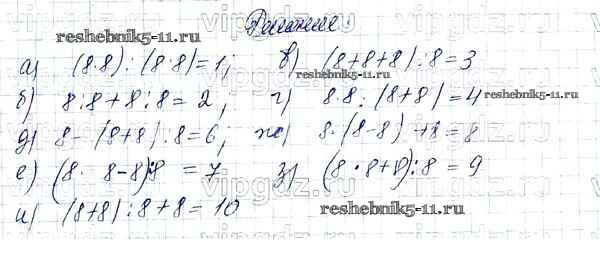 Решение.
reshebnik5-11.ru
а) (8·8):(8·8)=1; в) (8+8+8):8=3
reshebnik5-11.ru
б) 8:8+8:8=2; г) 8·8:(8+8)=4 reshebnik5-11.ru
д) 8-(8+8):8=6; ж) 8·(8-8)+8=8
е) (8·8-8):8=7 з) (8·8+8):8=9
и) (8+8):8+8=10
reshebnik5-11.ru
vipgdz.ru